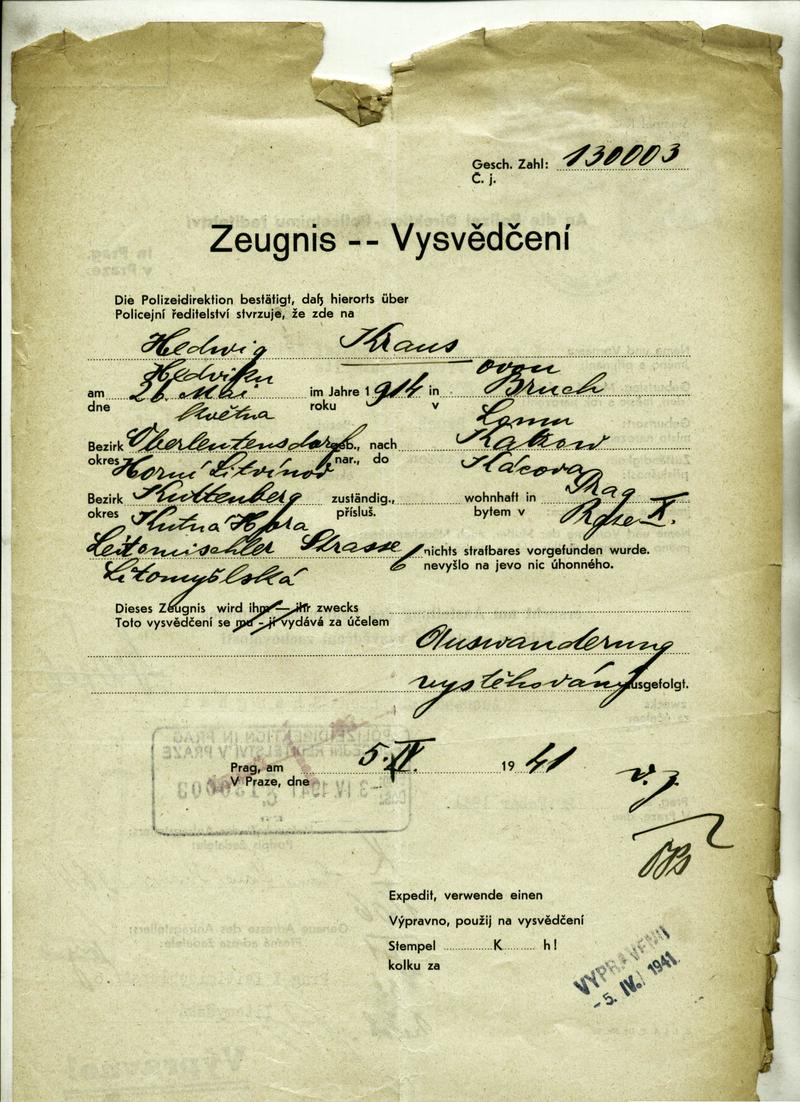 Gesch. Zahl: 130003
Č. j.
Zeugnis -- Vysvědčení
Die Polizeidirektion bestätigt, daß hierorts über
Policejní ředitelství stvrzuje, že zde na
Hedwig Kraus
Hedviku ovou
am 26. Mai im Jahre 1914 in Bruch
dne Května roku v Lomu
Bezirk Oberleutensdorf geb., nach Katzow
okres Horní Litvínov nar., do Kácova
Bezirk Kuttenberg zuständig., wohnhaft in Prag
okres Kutná Hora přísluš. bytem v Praze X.
Leitomischler Strasse 6 nichts strafbares vorgefunden wurde.
Litomyšlská nevyšlo na jevo nic úhonného.
Dieses Zeugnis wird ihm — ihr zwecks
Toto vysvědčení se mu - jí vydává za účelem
Auswanderung
vystěhování ausgefolgt.
Prag, am 5. IV. 1941
V Praze, dne
v. z.
Expedit, verwende einen
Výpravno, použij na vysvědčení
Stempel ........ K ....... h!
kolku za
VYPRAVENO
- 5. IV. 1941
POLIZEIDIREKTION IN PRAG
ŘEDITELSTVÍ V PRAZE
3 IV. 1941
130003